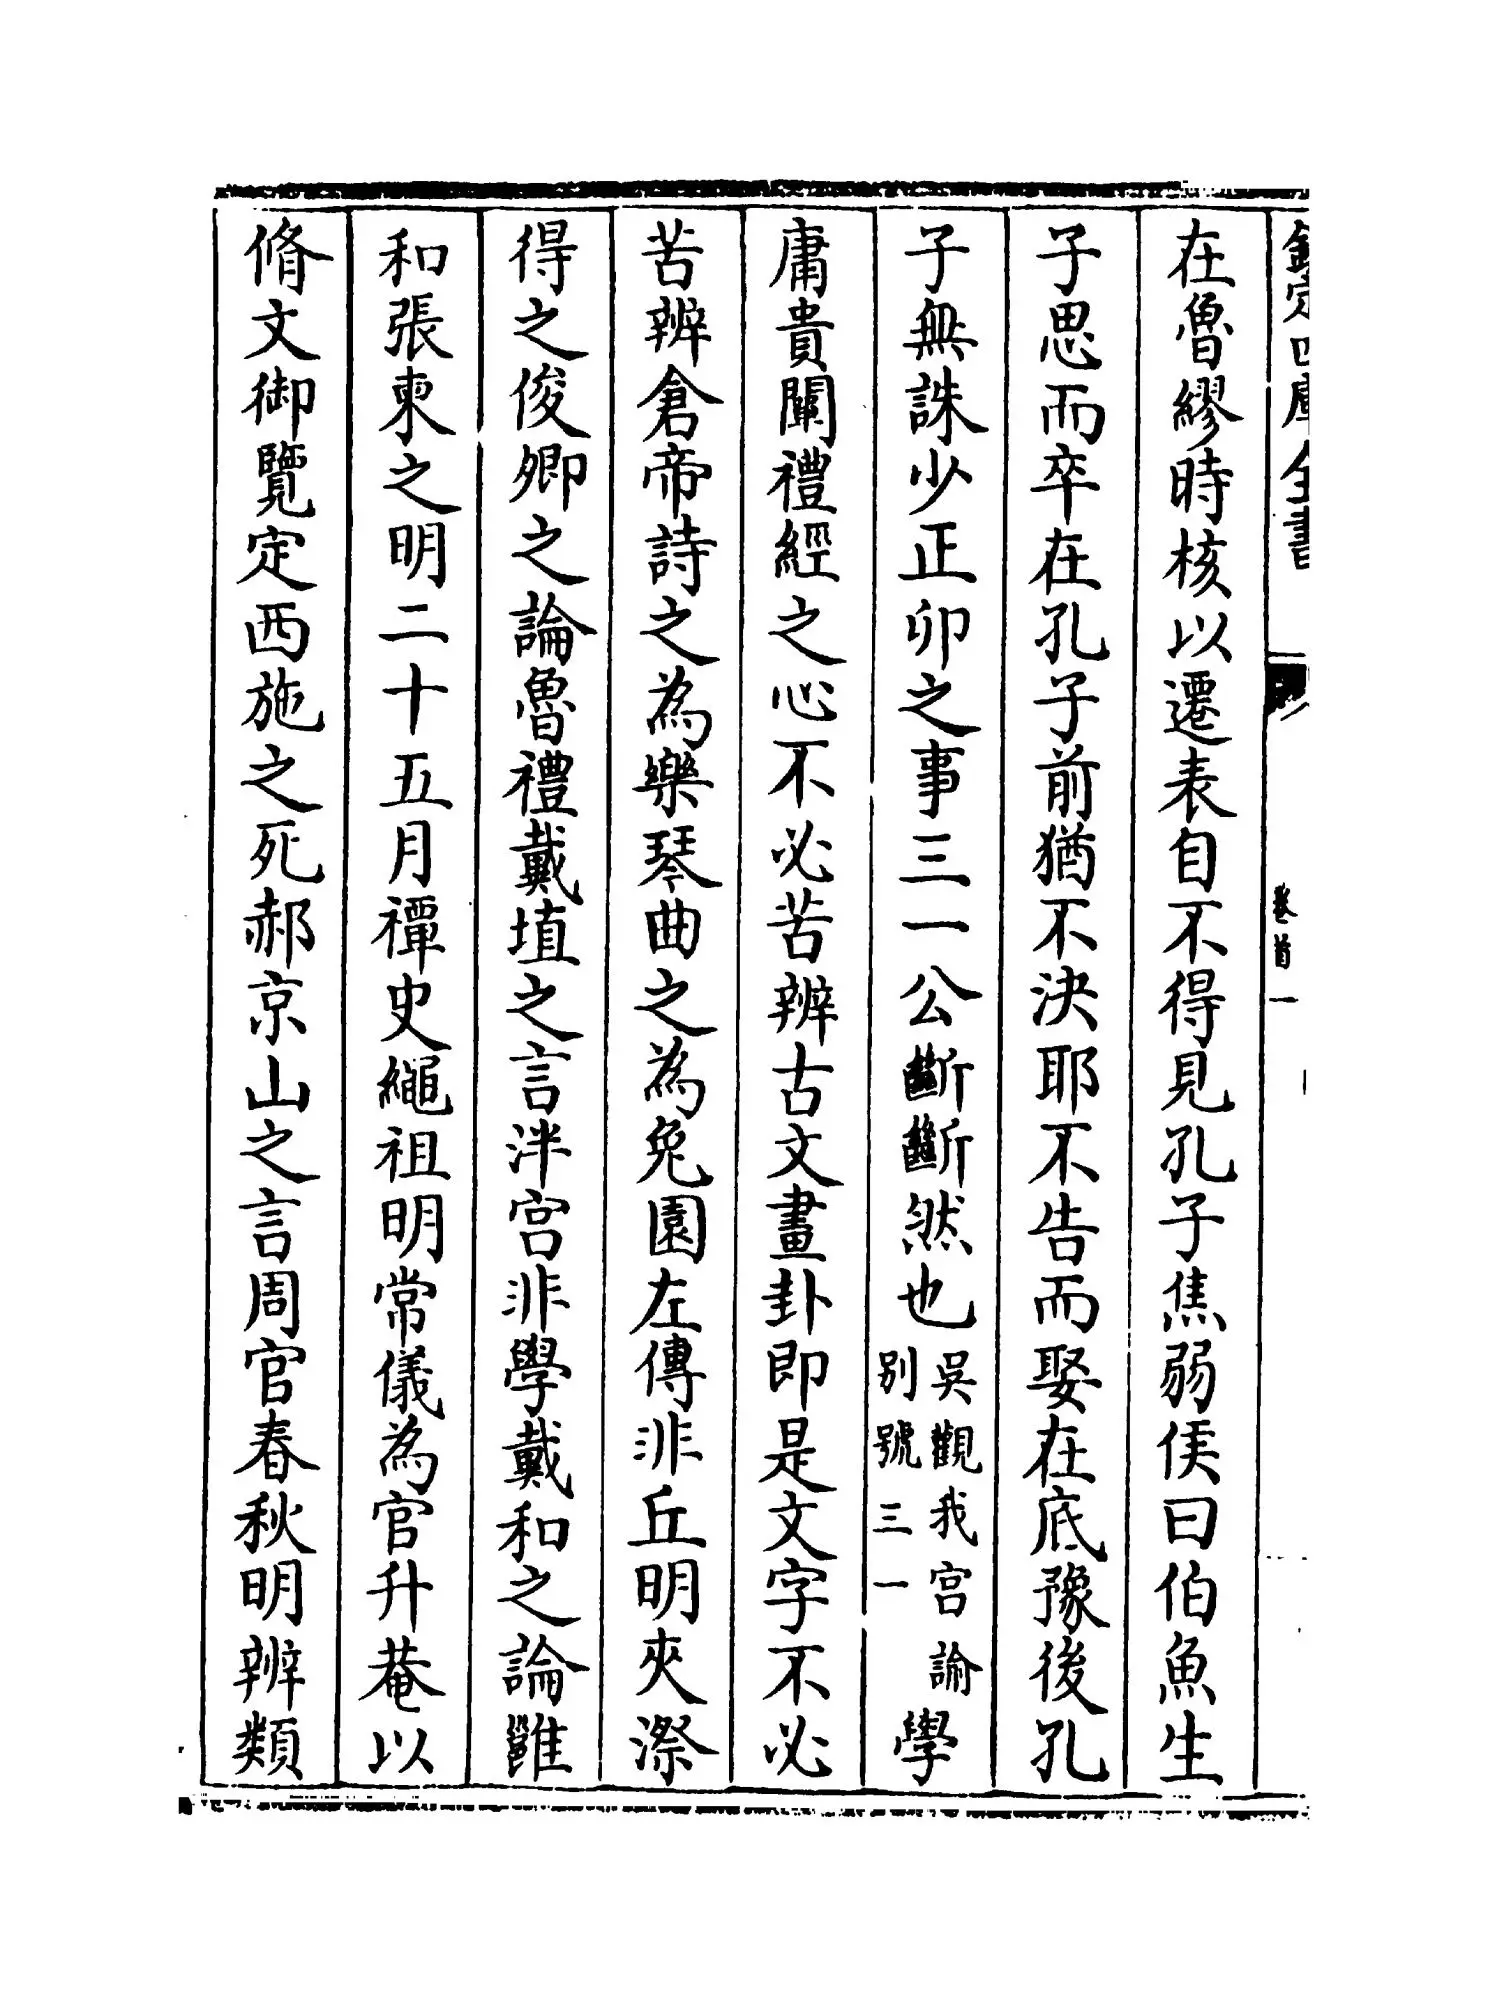 欽定四庫全書
卷首一
在魯繆時核以遷表自不得見孔子焦弱侯曰伯魚生
子思而卒在孔子前猶不決耶不告而娶在底豫後孔
子無誅少正卯之事三一公斷斷然也吳觀我宫諭别號三一學
庸貴闡禮經之心不必苦辨古文畫卦即是文字不必
苦辨倉帝詩之為樂琴曲之為兔園左傳非丘明夾漈
得之俊卿之論魯禮戴埴之言泮宫非學戴和之論雝
和張柬之明二十五月禫史繩祖明常儀為官升菴以
脩文御覽定西施之死郝京山之言周官春秋明辨類